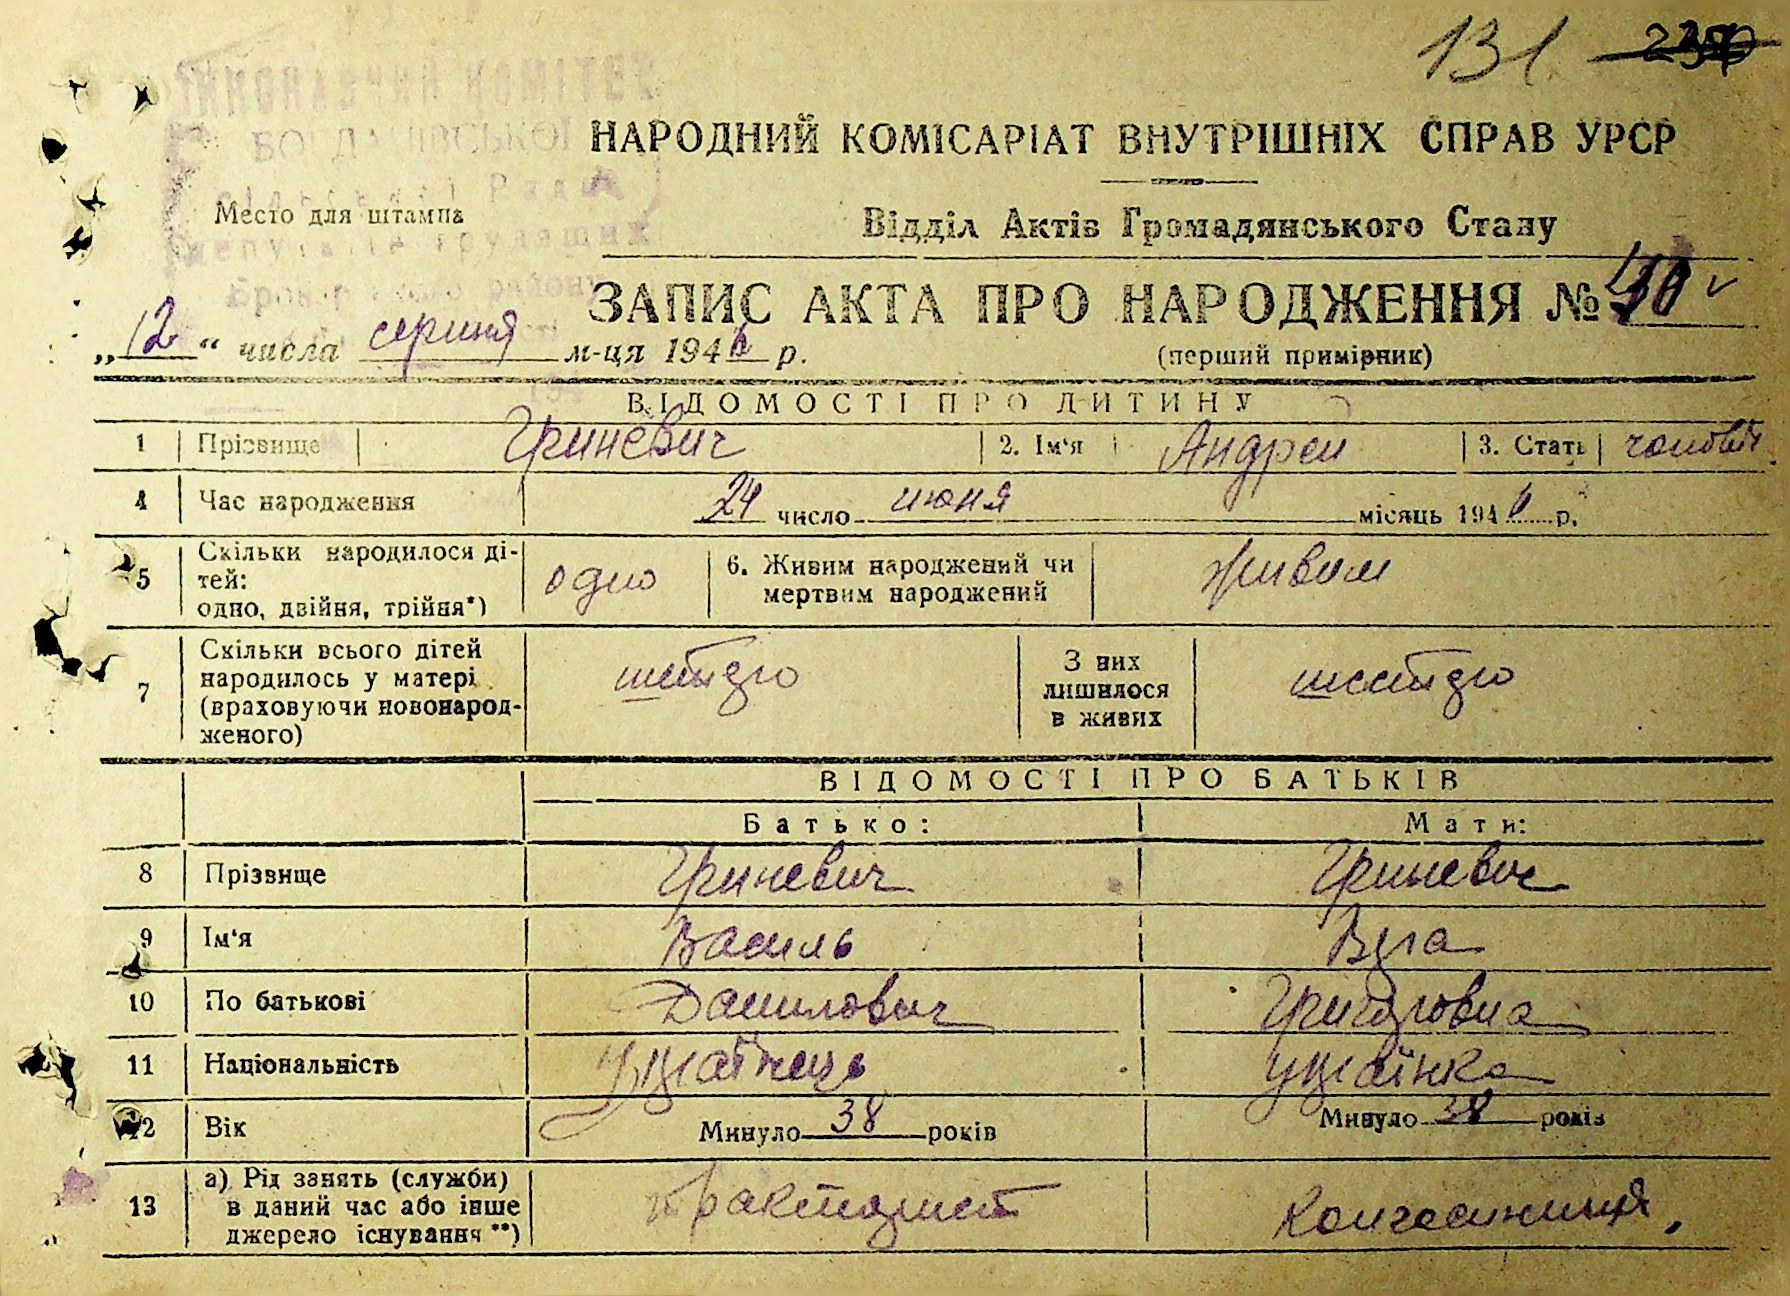 131
НАРОДНИЙ КОМІСАРІАТ ВНУТРІШНІХ СПРАВ УРСР
БОГДАНІВСЬКОЇ
Место для штампа
Відділ Актів Громадянського Стану
ЗАПИС АКТА ПРО НАРОДЖЕННЯ №
„12“ числа серпня м-ця 194 р.
(перший примірник)
ВІДОМОСТІ ПРО ДИТИНУ
1 Прізвище Гриневич 2. Ім'я Андрей 3. Стать
4 Час народження 24 число июня місяць 194 р.
5 Скільки народилося ді-
тей:
одно, двійня, трійня*)
одно
6. Живим народжений чи
мертвим народжений
живим
7 Скільки всього дітей
народилось у матері
(враховуючи новонарод-
женого)
З них
лишилося
в живих
ВІДОМОСТІ ПРО БАТЬКІВ
Батько: Мати:
8 Прізвище Гриневич Гриневич
9 Ім'я Василь Віра
10 По батькові Данилович Григоровна
11 Національність Українець українка
12 Вік Минуло 38 років Минуло 38 років
13 а) Рід занять (служби)
в даний час або інше
джерело існування **)
тракторист колгоспниця